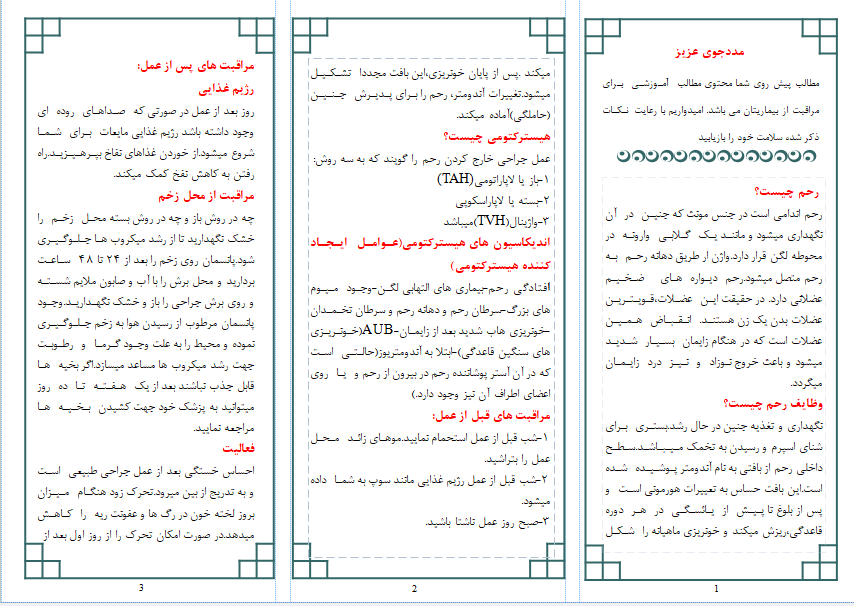 مددجوی عزیز
مطالب پیش روی شما محتوی مطالب آموزشی برای
مراقبت از بیماریتان می باشد. امیدواریم با رعایت نکات
ذکر شده سلامت خود را بازیابید
رحم چیست؟
رحم اندامی است در جنس مونث که جنین در آن
نگهداری میشود و مانند یک گلابی وارونه در
محوطه لگن قرار دارد.واژن از طریق دهانه رحم به
رحم متصل میشود.رحم دیواره های ضخیم
عضلاتی دارد. در حقیقت این عضلات،قویترین
عضلات بدن یک زن هستند. انقباض همین
عضلات است که در هنگام زایمان بسیار شدید
میشود و باعث خروج نوزاد و نیز درد زایمان
میگردد.
وظایف رحم چیست؟
نگهداری و تغذیه جنین در حال رشد.بستری برای
شنای اسپرم و رسیدن به تخمک میباشد.سطح
داخلی رحم از بافتی به نام آندومتر پوشیده شده
است.این بافت حساس به تغییرات هورمونی است و
پس از بلوغ تا پیش از یائسگی در هر دوره
قاعدگی،ریزش میکند و خونریزی ماهیانه را شکل
1
میکند .پس از پایان خونریزی،این بافت مجددا تشکیل
میشود.تغییرات آندومتر، رحم را برای پذیرش جنین
(حاملگی)آماده میکند.
هیسترکتومی چیست؟
عمل جراحی خارج کردن رحم را گویند که به سه روش:
۱-باز یا لاپاراتومی(TAH)
۲-بسته یا لاپاراسکوپی
۳-واژینال(TVH)میباشد
اندیکاسیون های هیسترکتومی(عوامل ایجاد
کننده هیسترکتومی)
افتادگی رحم-بیماری های التهابی لگن-وجود میوم
های بزرگ-سرطان رحم و دهانه رحم و سرطان تخمدان
-خونریزی هاب شدید بعد از زایمان-AUB(خونریزی
های سنگین قاعدگی)-ابتلا به آندومتریوز(حالتی است
که در آن آستر پوشاننده رحم در بیرون از رحم و یا روی
اعضای اطراف آن نیز وجود دارد.)
مراقبت های قبل از عمل:
۱-شب قبل از عمل استحمام نمایید.موهای زائد محل
عمل را بتراشید.
۲-شب قبل از عمل رژیم غذایی مانند سوپ به شما داده
میشود.
۳-صبح روز عمل ناشتا باشید.
2
مراقبت های پس از عمل:
رژیم غذایی
روز بعد از عمل در صورتی که صداهای روده ای
وجود داشته باشد رژیم غذایی مایعات برای شما
شروع میشود.از خوردن غذاهای نفاخ بپرهیزید.راه
رفتن به کاهش نفخ کمک میکند.
مراقبت از محل زخم
چه در روش باز و چه در روش بسته محل زخم را
خشک نگهدارید تا از رشد میکروب ها جلوگیری
شود.پانسمان روی زخم را بعد از ۲۴ تا ۴۸ ساعت
بردارید و محل برش را با آب و صابون ملایم شسته
و روی برش جراحی را باز و خشک نگهدارید.وجود
پانسمان مرطوب از رسیدن هوا به زخم جلوگیری
نموده و محیط را به علت وجود گرما و رطوبت
جهت رشد میکروب ها مساعد میسازد.اگر بخیه ها
قابل جذب نباشند بعد از یک هفته تا ده روز
میتوانید به پزشک خود جهت کشیدن بخیه ها
مراجعه نمایید.
فعالیت
احساس خستگی بعد از عمل جراحی طبیعی است
و به تدریج از بین میرود.تحرک زود هنگام میزان
بروز لخته خون در رگ ها و عفونت ریه را کاهش
میدهد.در صورت امکان تحرک را از روز اول بعد از
3